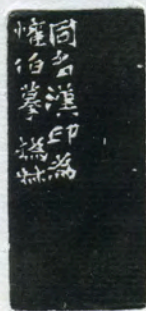 同名漢印為
懽伯摹 撝叔